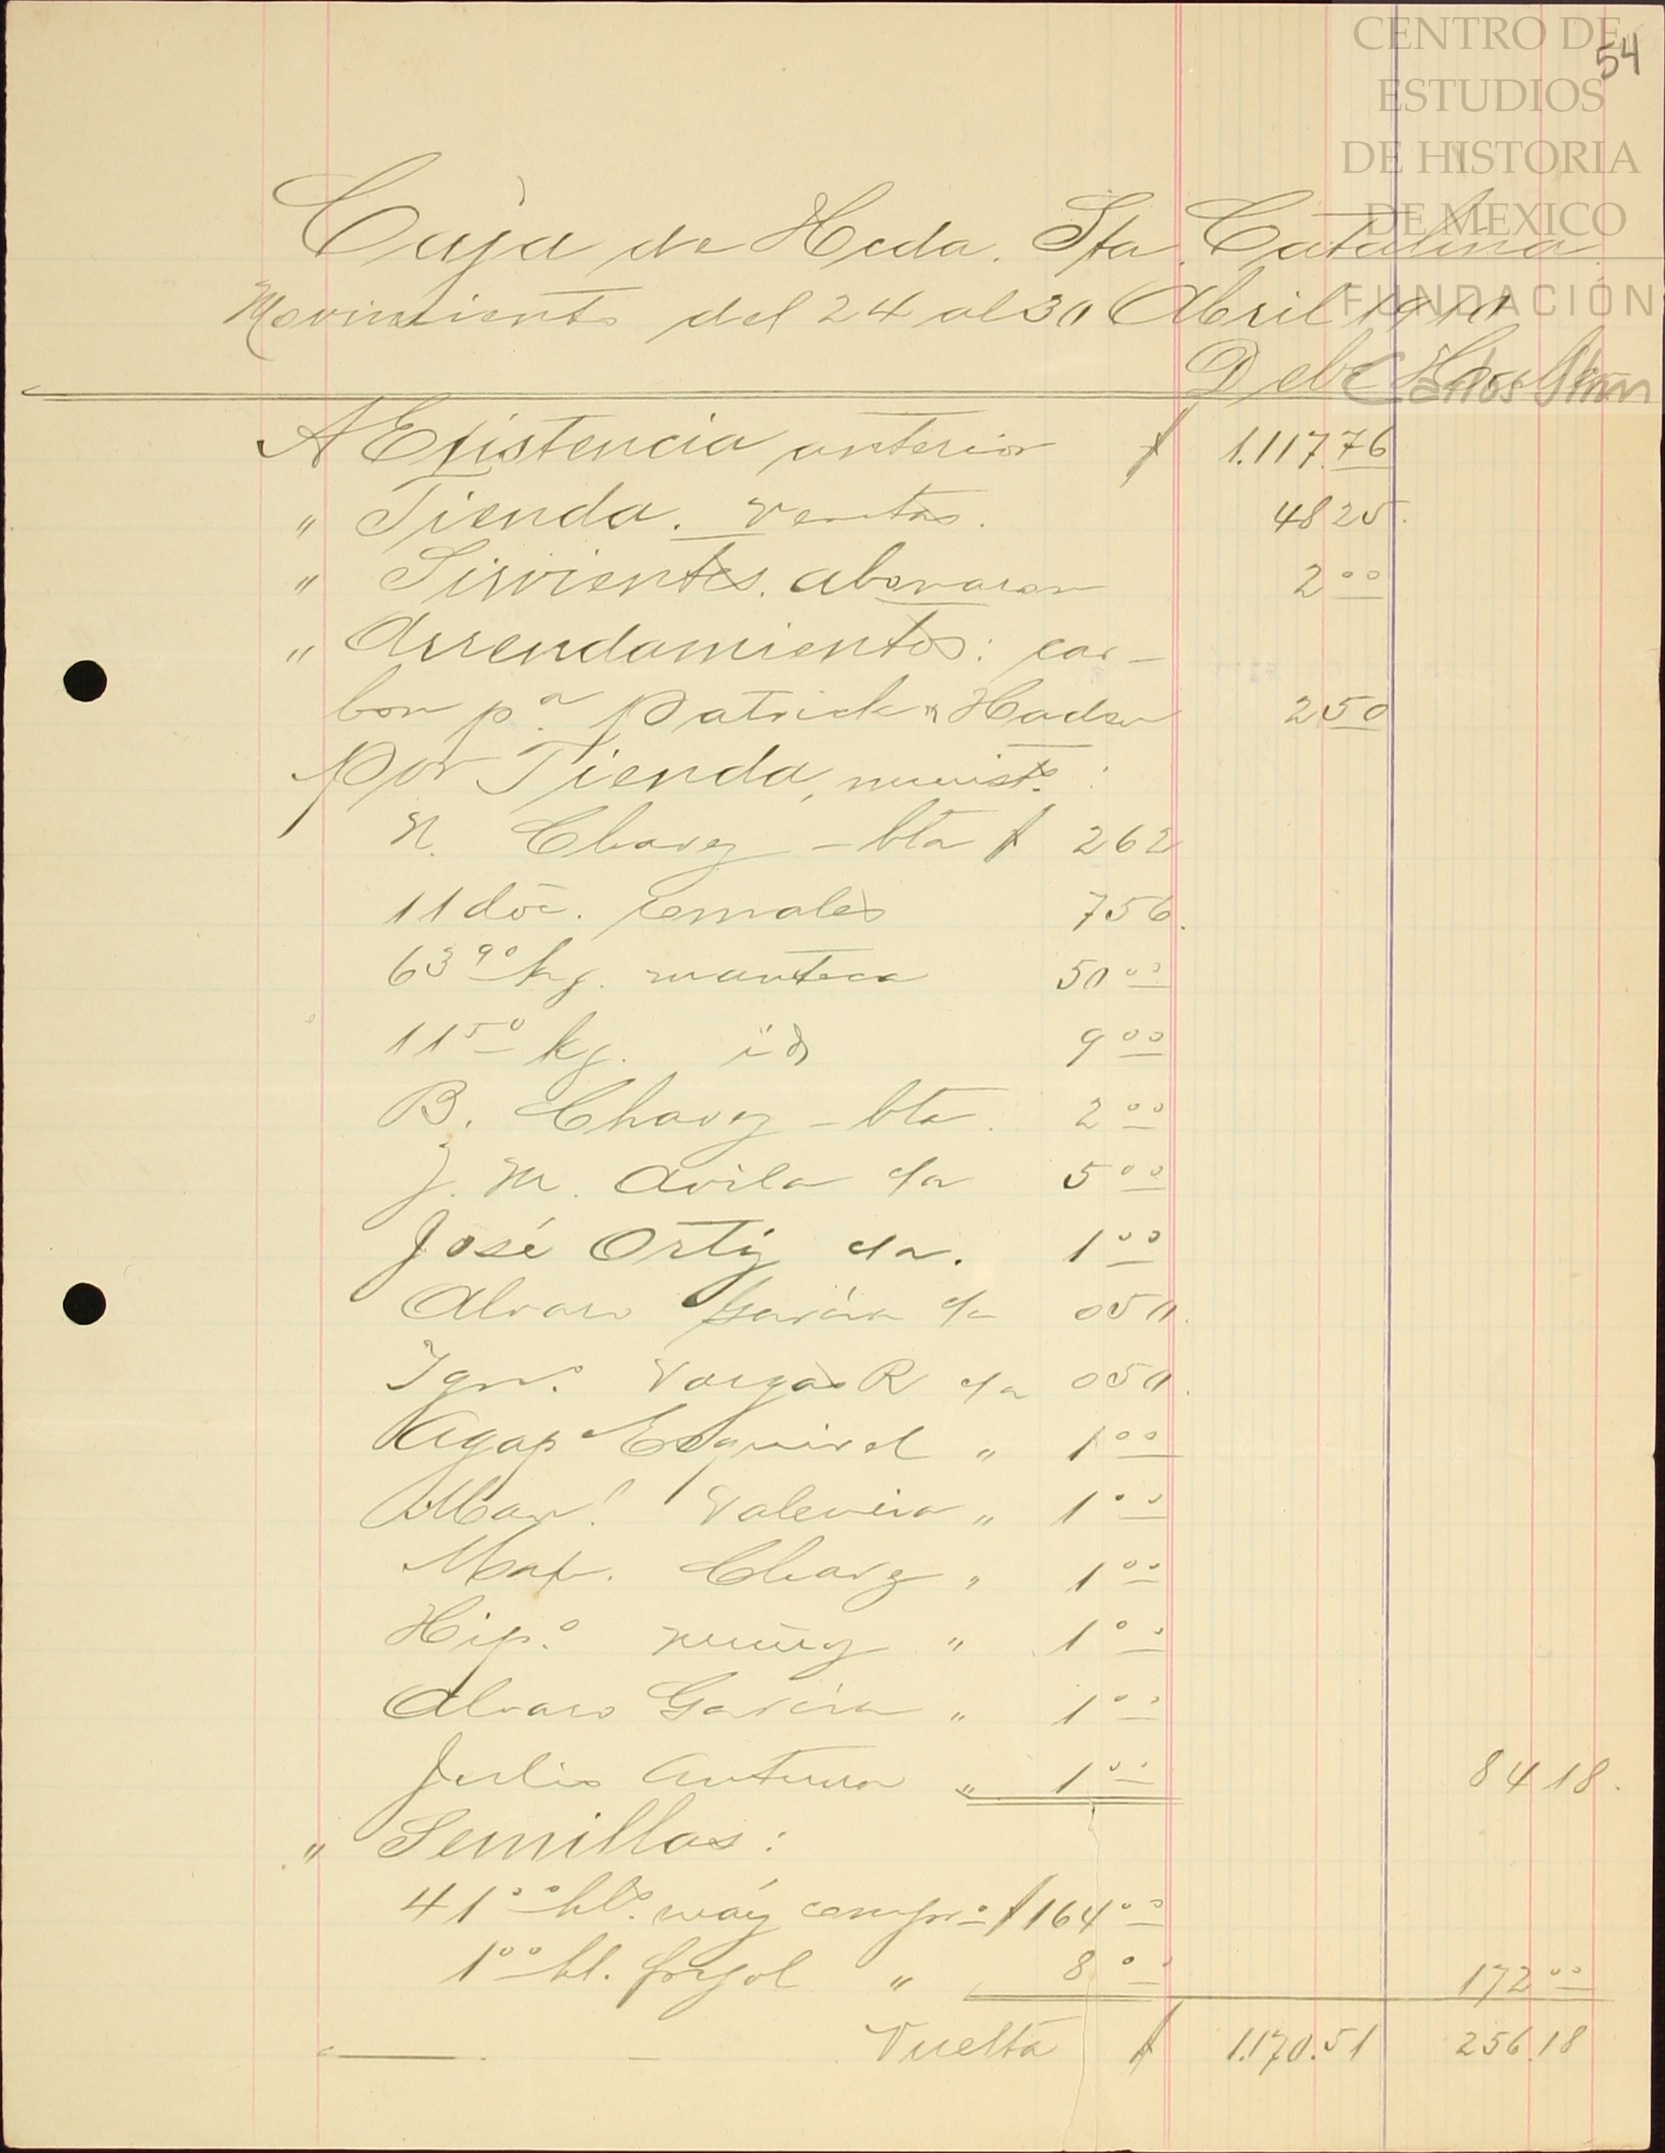 CENTRO DE
ESTUDIOS
DE HISTORIA
DE MEXICO
FUNDACIÓN
Carlos Slim
54
Caja de Hcda. Sta. Catalina.
Movimiento del 24 al 30 Abril 1910
Debe Haber
A Existencia anterior $ 1.117.76
" Tienda. ventas. 48 25.
" Sirvientes. abonaron 2 00
" Arrendamientos: car-
bon pa. Patrick Hudson 2 50
Por Tienda, :
N. Chavez - bta $ 2 62
11 doc. 7 56.
63 90 kg. manteca 50 00
11 50 kg. id 9 00
B. Chavez - bta. 2 00
J. M. Avila da 5 00
José Ortiz da. 1 00
Alvaro García da 0 50.
Igno. Vargas R da 0 50.
Agapo Esquivel " 1 00
Manl. Valencia " 1 00
Chavez " 1 00
Hipo. Nuñez " 1 00
Alvaro García " 1 00
Julio Antuna " 1 00 84 18.
" Semillas:
41 00 hls. maíz compro $ 164 00
1 00 hl. frijol " 8 00 172 00
Vuelta $ 1.170.51 256.18